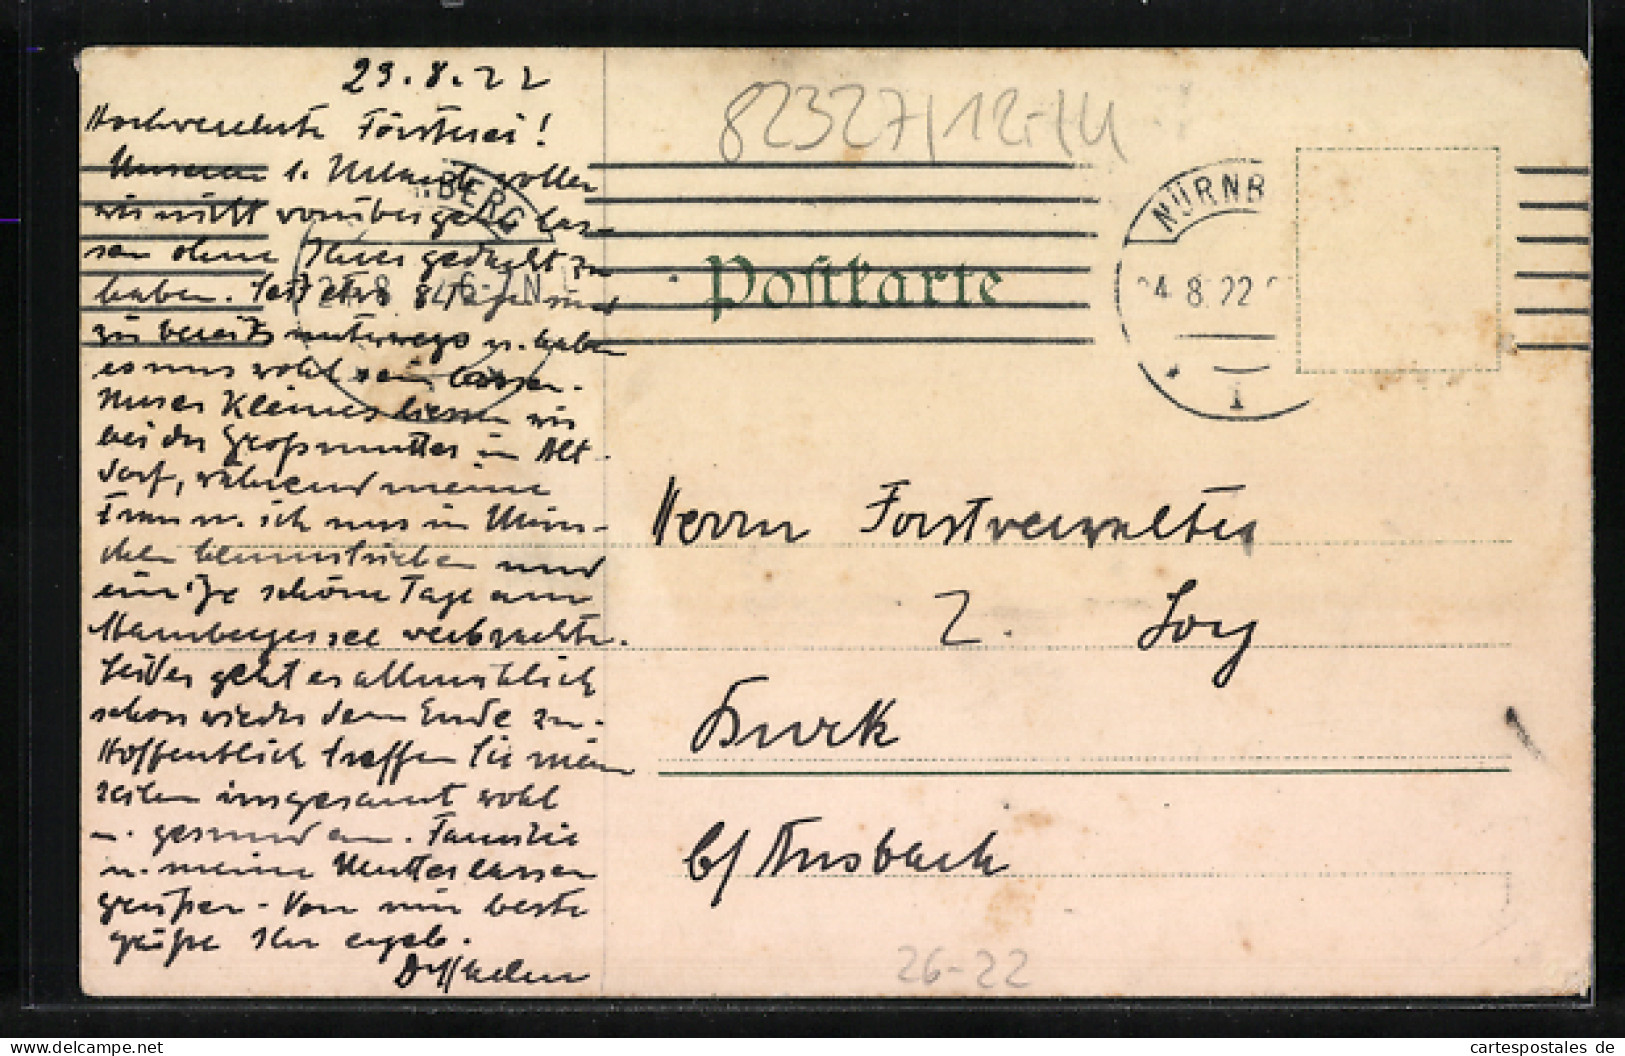 23.8.22
Hochverehrte Försterei!
Unseren 1. Urlaub wollen
wir nicht vorübergehn las-
sen ohne Ihrer gedacht zu
haben. Seit etwa 8 Tage sind
wir bereits unterwegs u. haben
es uns wohl sein lassen.
Unser Kleines liessen wir
bei der Großmutter in Alt-
dorf, während meine
Frau u. ich uns in Mün-
chen herumtrieben und
einige schöne Tage am
Starnbergersee verbrachten.
Leider geht es allmählich
schon wieder dem Ende zu.
Hoffentlich treffen Sie meine
Zeilen insgesamt wohl
u. gesund an. Familie
u. meine Mutter lassen
grüßen. Von mir beste
grüße Ihr ergeb.
82327/12.-/U
NÜRNBERG
NÜRNB
24.8.22
1
Postkarte
Herrn Forstverwalter
Z. Loy
Burk
b/Ansbach
26-22
cartespostales de